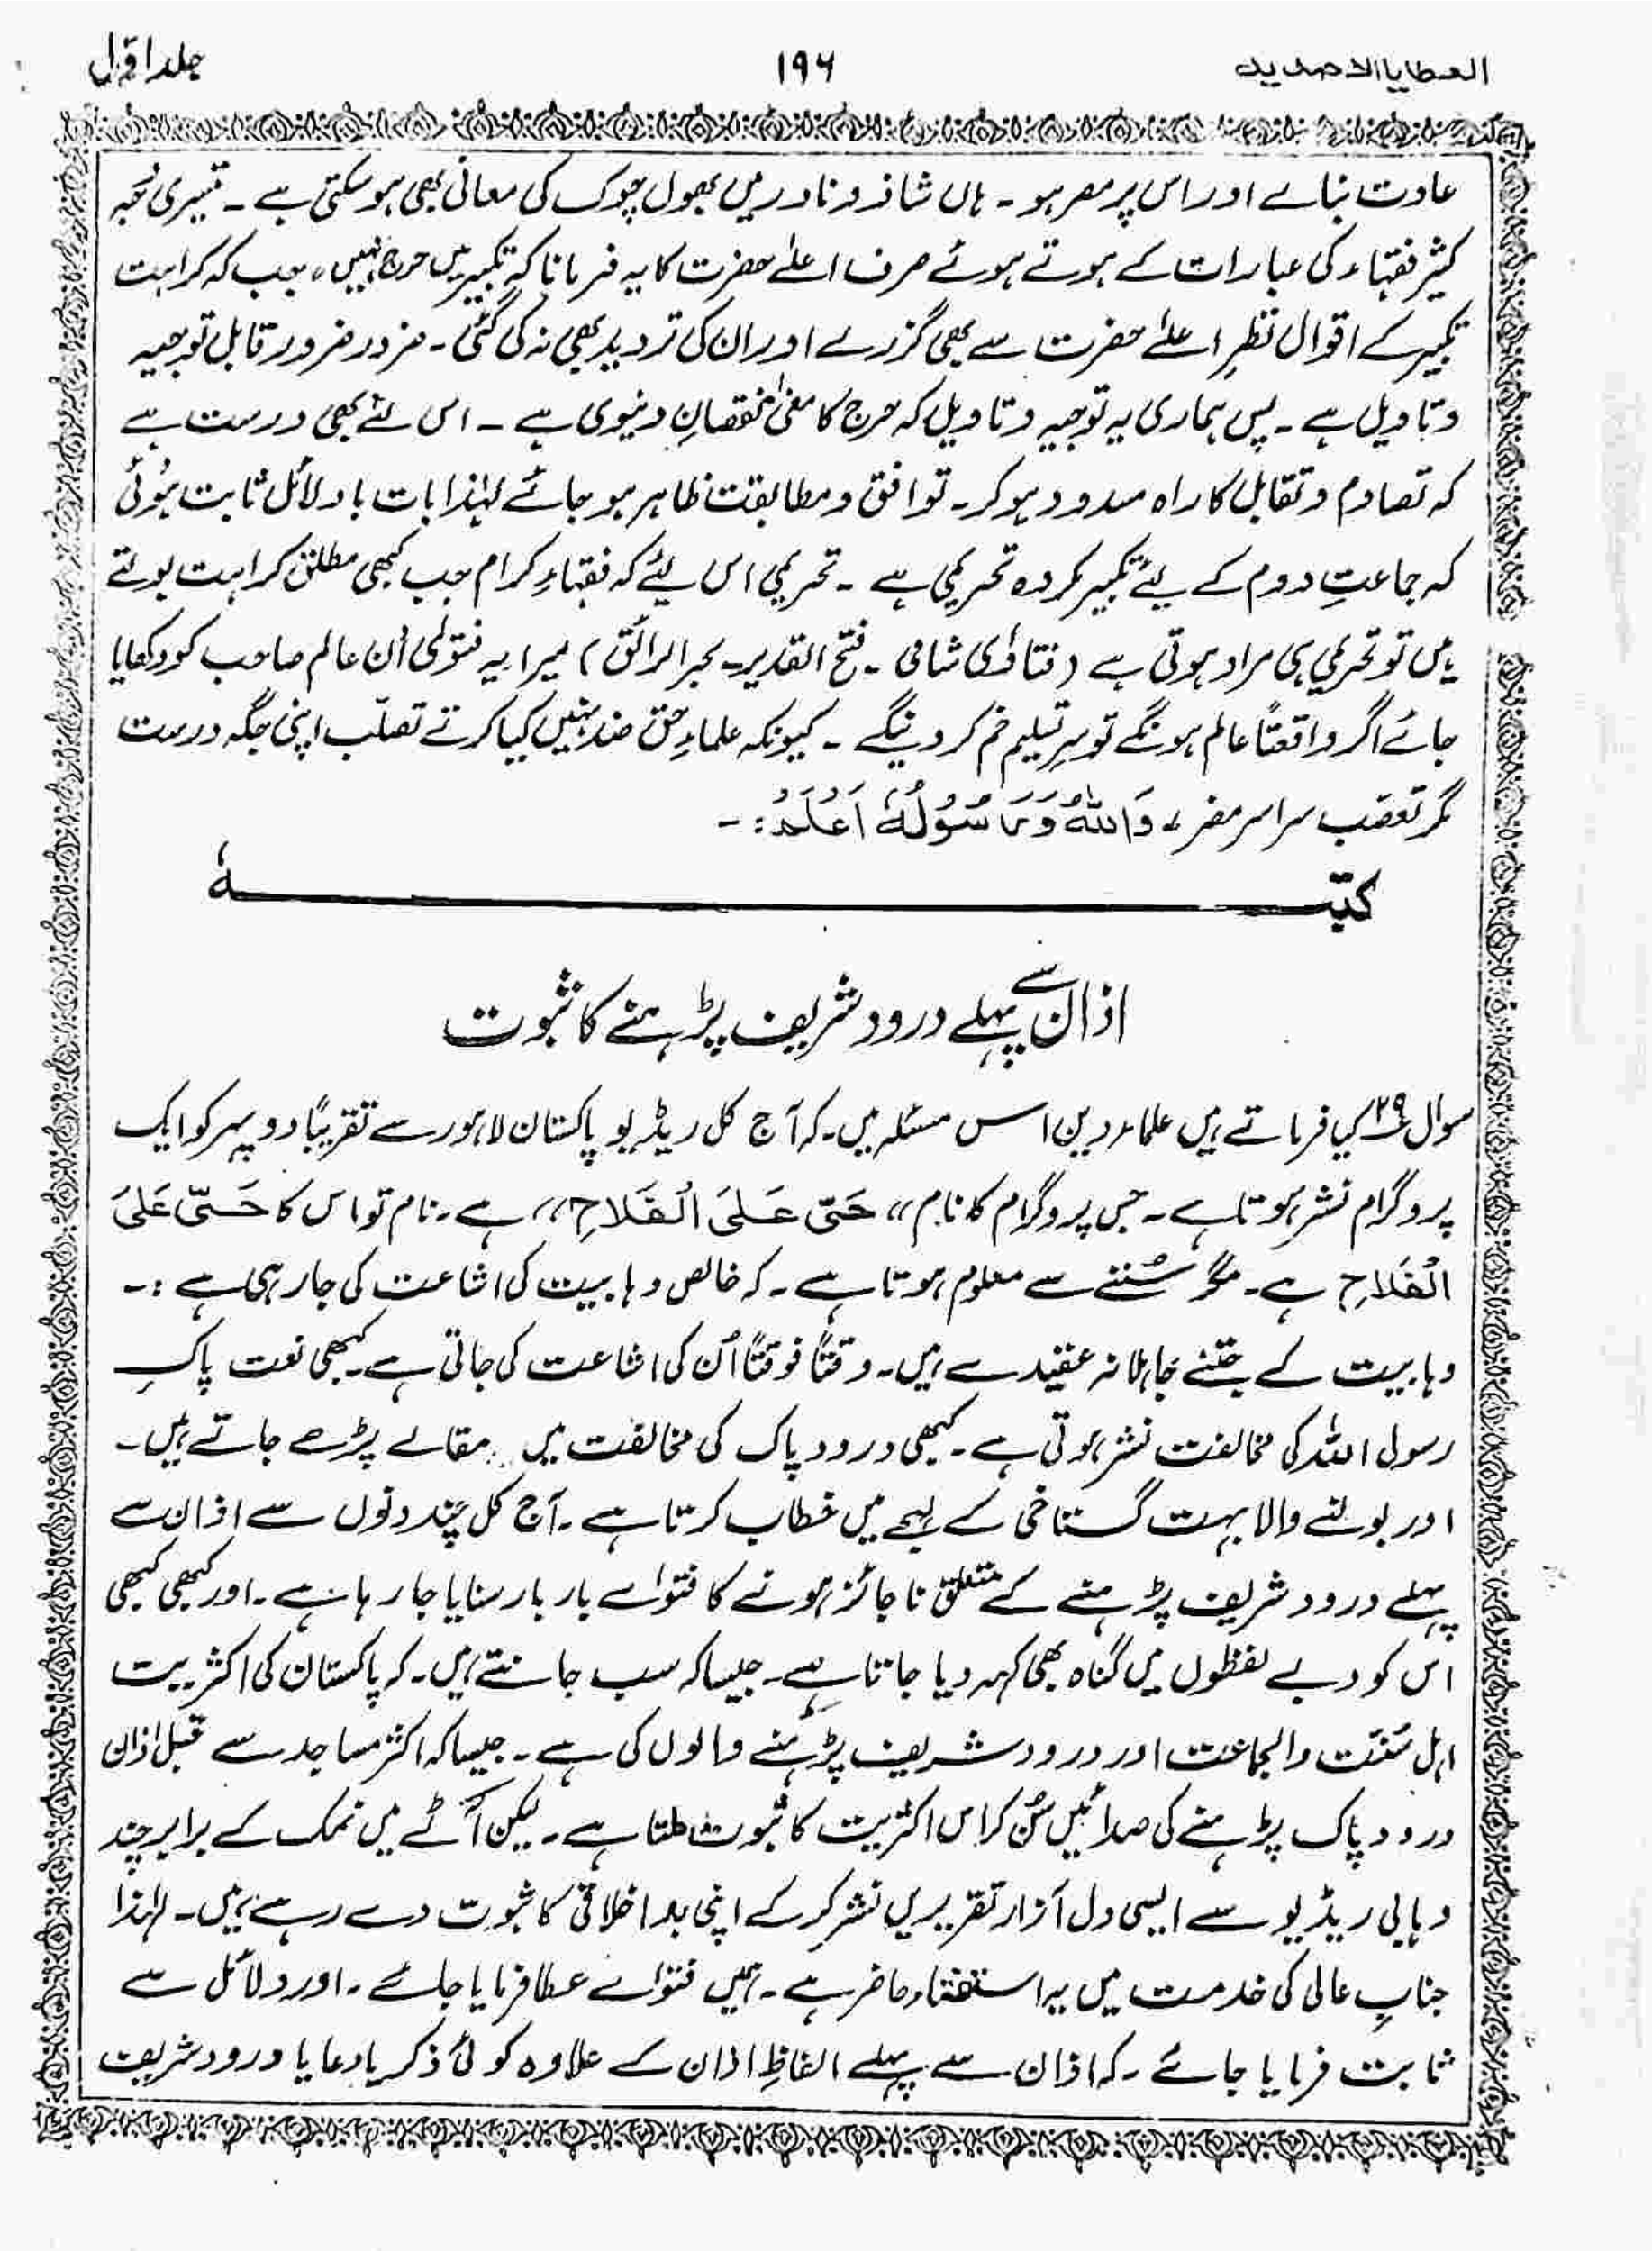 العطایا الاحمدیہ ۱۹۶ جلد اوّل
عادت بنالے اور اس پر مصر ہو۔ ہاں شاذ و نادر میں بھول چوک کی معافی بھی ہو سکتی ہے۔ تیسری وجہ
کثیر فقہاء کی عبارات کے ہوتے ہوئے صرف اعلےٰ حضرت کا یہ فرمانا کہ تکبیر میں حرج نہیں، جب کہ کراہت
تکبیر کے اقوال نظرِ اعلےٰ حضرت سے بھی گزرے اور ان کی تردید بھی نہ کی گئی۔ ضرور ضرور قابل توجیہ
و تاویل ہے۔ پس ہماری یہ توجیہ و تاویل کہ حرج کا معنیٰ نقصانِ دنیوی ہے۔ اس لئے بھی درست ہے
کہ تصادم و تقابل کا راہ مسدود ہو کر۔ توافق و مطابقت ظاہر ہو جائے لہٰذا بات بادلائل ثابت ہُوئی
کہ جماعتِ دوم کے لیئے تکبیر مکروہ تحریمی ہے۔ تحریمی اس لیئے کہ فقہاءِ کرام جب کبھی مطلق کراہت بولتے
ہیں تو تحریمی ہی مراد ہوتی ہے (فتاوٰی شامی۔ فتح القدیر۔ بحر الرائق) میرا یہ فتوٰی اُن عالم صاحب کو دکھایا
جائے اگر واقعتًا عالم ہونگے تو سرِ تسلیم خم کر دینگے۔ کیونکہ علماءِ حق ضد نہیں کیا کرتے تصلّب اپنی جگہ درست
مگر تعصّب سراسر مضر، وَاللّٰهُ وَرَسُوْلُهٗ اَعْلَمُ:۔
کتبــــــــہٗ
اذان سے پہلے درود شریف پڑہنے کا ثبوت
سوال ۲۹ کیا فرماتے ہیں علماء دین اس مسئلہ میں۔ کہ آج کل ریڈیو پاکستان لاہور سے تقریبًا دوپہر کو ایک
پروگرام نشر ہوتا ہے۔ جس پروگرام کا نام ،،حَیَّ عَلَی الْفَلَاحِ،، ہے۔ نام تو اس کا حَیَّ عَلَی
الْفَلَاحِ ہے۔ مگر سُننے سے معلوم ہوتا ہے۔ کہ خالص وہابیت کی اشاعت کی جا رہی ہے :۔
وہابیت کے جتنے جاہلانہ عقیدے ہیں۔ وقتًا فوقتًا اُن کی اشاعت کی جاتی ہے۔ کبھی نعت پاکِ
رسول اللہ کی مخالفت نشر ہوتی ہے۔ کبھی درود پاک کی مخالفت میں مقالے پڑھے جاتے ہیں۔
اور بولنے والا بہت گستاخی کے لہجے میں خطاب کرتا ہے۔ آج کل چند دنوں سے اذان سے
پہلے درود شریف پڑہنے کے متعلق ناجائز ہونے کا فتوٰے بار بار سنایا جا رہا ہے۔ اور کبھی کبھی
اس کو دبے لفظوں میں گناہ بھی کہہ دیا جاتا ہے۔ جیسا کہ سب جانتے ہیں۔ کہ پاکستان کی اکثریت
اہل سُنّت والجماعت اور درود شریف پڑہنے والوں کی ہے۔ جیسا کہ اکثر مساجد سے قبل اذان
درود پاک پڑہنے کی صدائیں سُن کر اس اکثریت کا ثبوت ملتا ہے۔ لیکن آٹے میں نمک کے برابر چند
وہابی ریڈیو سے ایسی دل آزار تقریریں نشر کر کے اپنی بد اخلاقی کا ثبوت دے رہے ہیں۔ لہٰذا
جنابِ عالی کی خدمت میں یہ استفتاء حاضر ہے۔ ہمیں فتوٰے عطا فرمایا جائے۔ اور دلائل سے
ثابت فرمایا جائے۔ کہ اذان سے پہلے الفاظِ اذان کے علاوہ کوئی ذکر یا دعا یا درود شریف